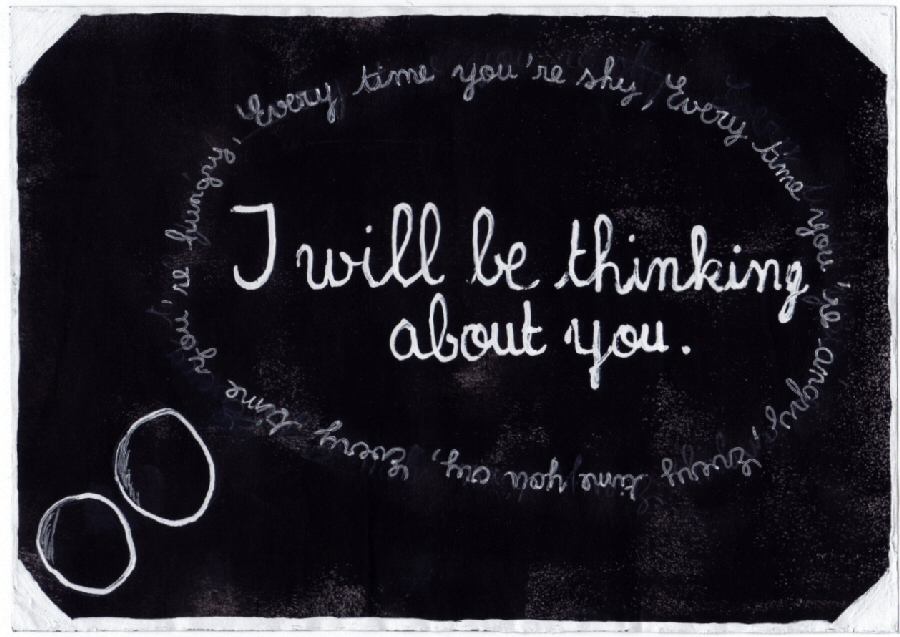 I will be thinking
about you.
Every time you're shy, Every time you're angry, Every time you cry, Every time you're hungry,